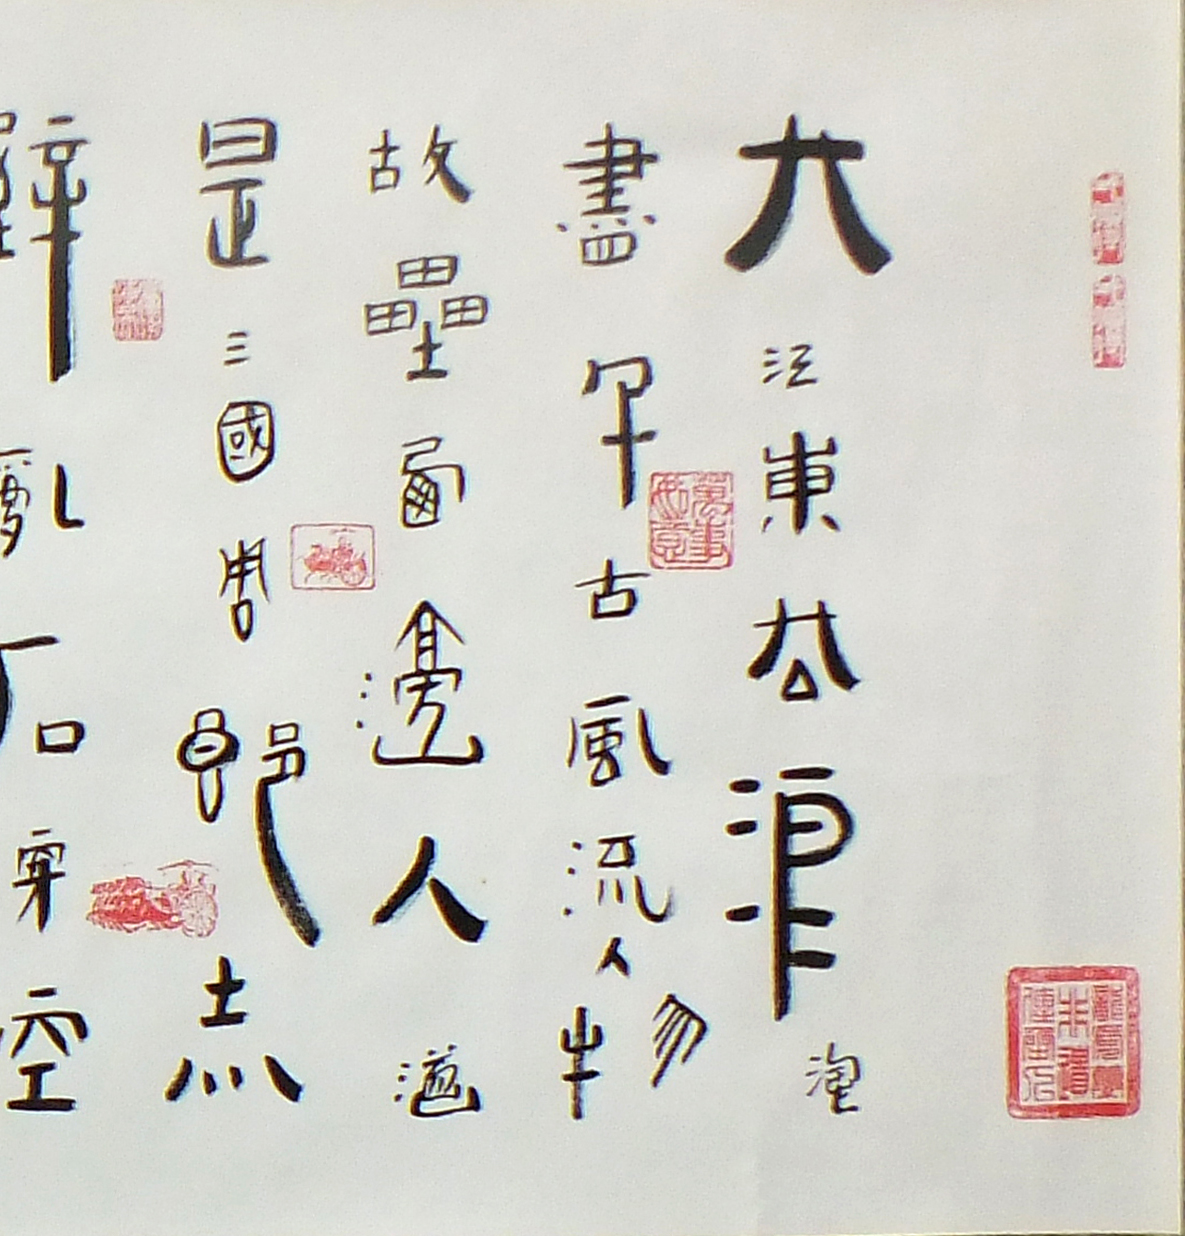 大江東去浪淘
盡千古風流人物
故壘西邊人道
是三國周郎赤
壁亂石穿空
萬事如意